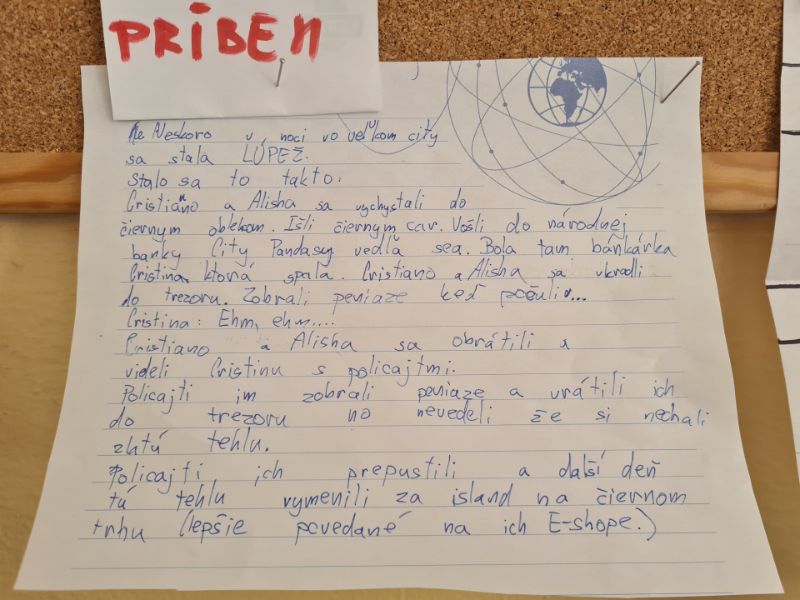 PRÍBEH
Neskoro v noci vo veľkom city
sa stala LÚPEŽ.
Stalo sa to takto:
Cristiano a Alisha sa vychystali do
čiernym oblekom. Išli čiernym car. Vošli do národnej
banky City Pandasy vedľa sea. Bola tam bánkárka
Cristina ktorá spala. Cristiano a Alisha sa vkradli
do trezoru. Zobrali peniaze keď počuli...
Cristina: Ehm, ehm....
Cristiano a Alisha sa obrátili a
videli Cristinu s policajtmi.
Policajti im zobrali peniaze a vrátili ich
do trezoru no nevedeli že si nechali
zlatú tehlu.
Policajti ich prepustili a ďalší deň
tú tehlu vymenili za island na čiernom
trhu (lepšie povedané na ich E-shope.)